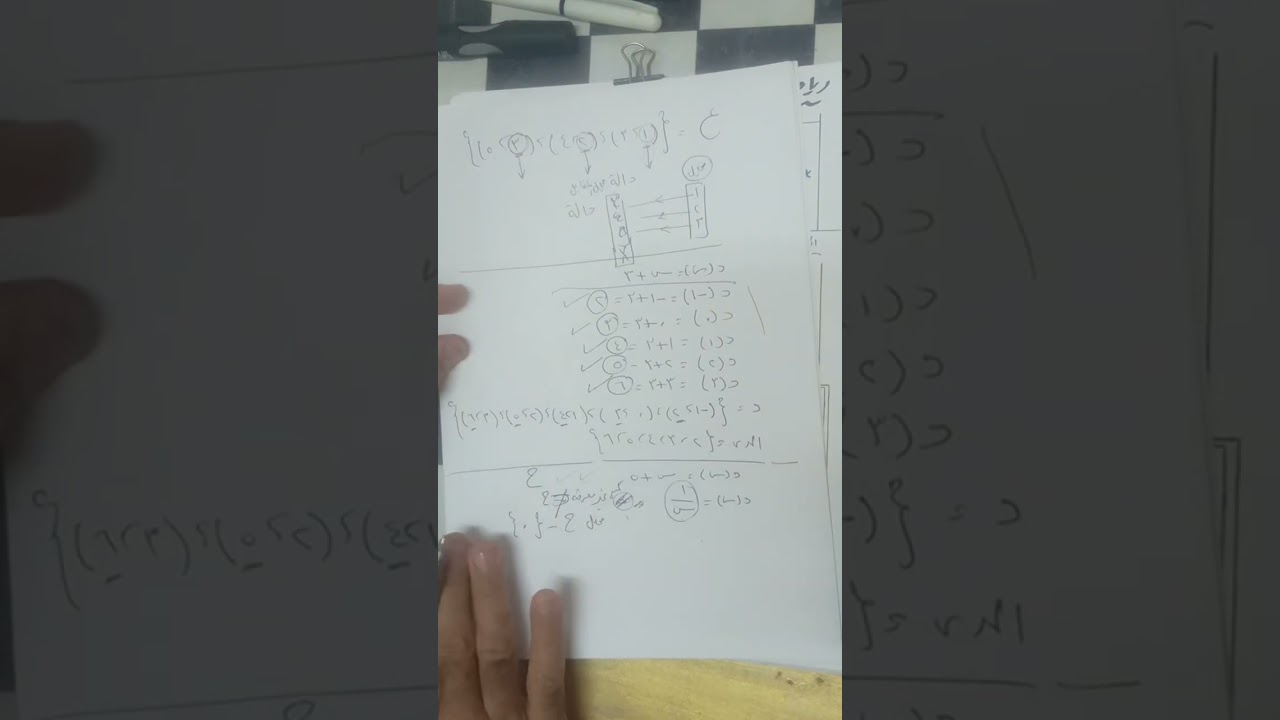 ع = {(١ ، ٣) ، (٢ ، ٤) ، (٣ ، ٥)}
مجال
دالة
١
٢
٣
٣
٤
٥
د(س) = س + ٣
د(-١) = -١ + ٣ = ٢
د(٠) = ٠ + ٣ = ٣
د(١) = ١ + ٣ = ٤
د(٢) = ٢ + ٣ = ٥
د(٣) = ٣ + ٣ = ٦
د = {(-١ ، ٢) ، (٠ ، ٣) ، (١ ، ٤) ، (٢ ، ٥) ، (٣ ، ٦)}
المدى = {٢ ، ٣ ، ٤ ، ٥ ، ٦}
د(س) = س + ٥ ح
د(س) = ١/س غير معرفة ح
مجال ح - {٠}